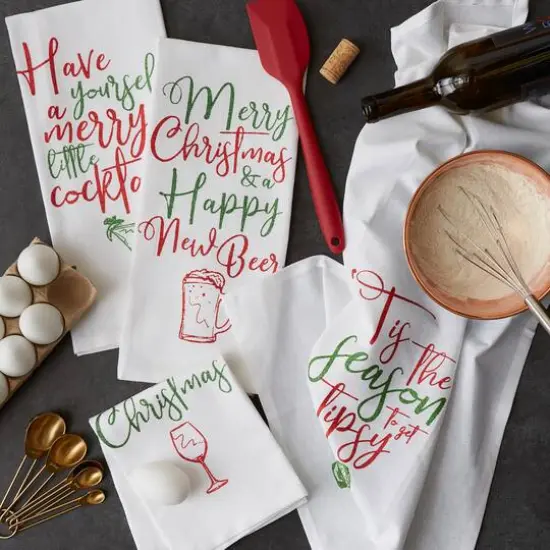 Have
yourself
a
merry
little
cockta
Merry
Christmas
& a
Happy
New Beer
'Tis
the
season
to get
tipsy
Christmas